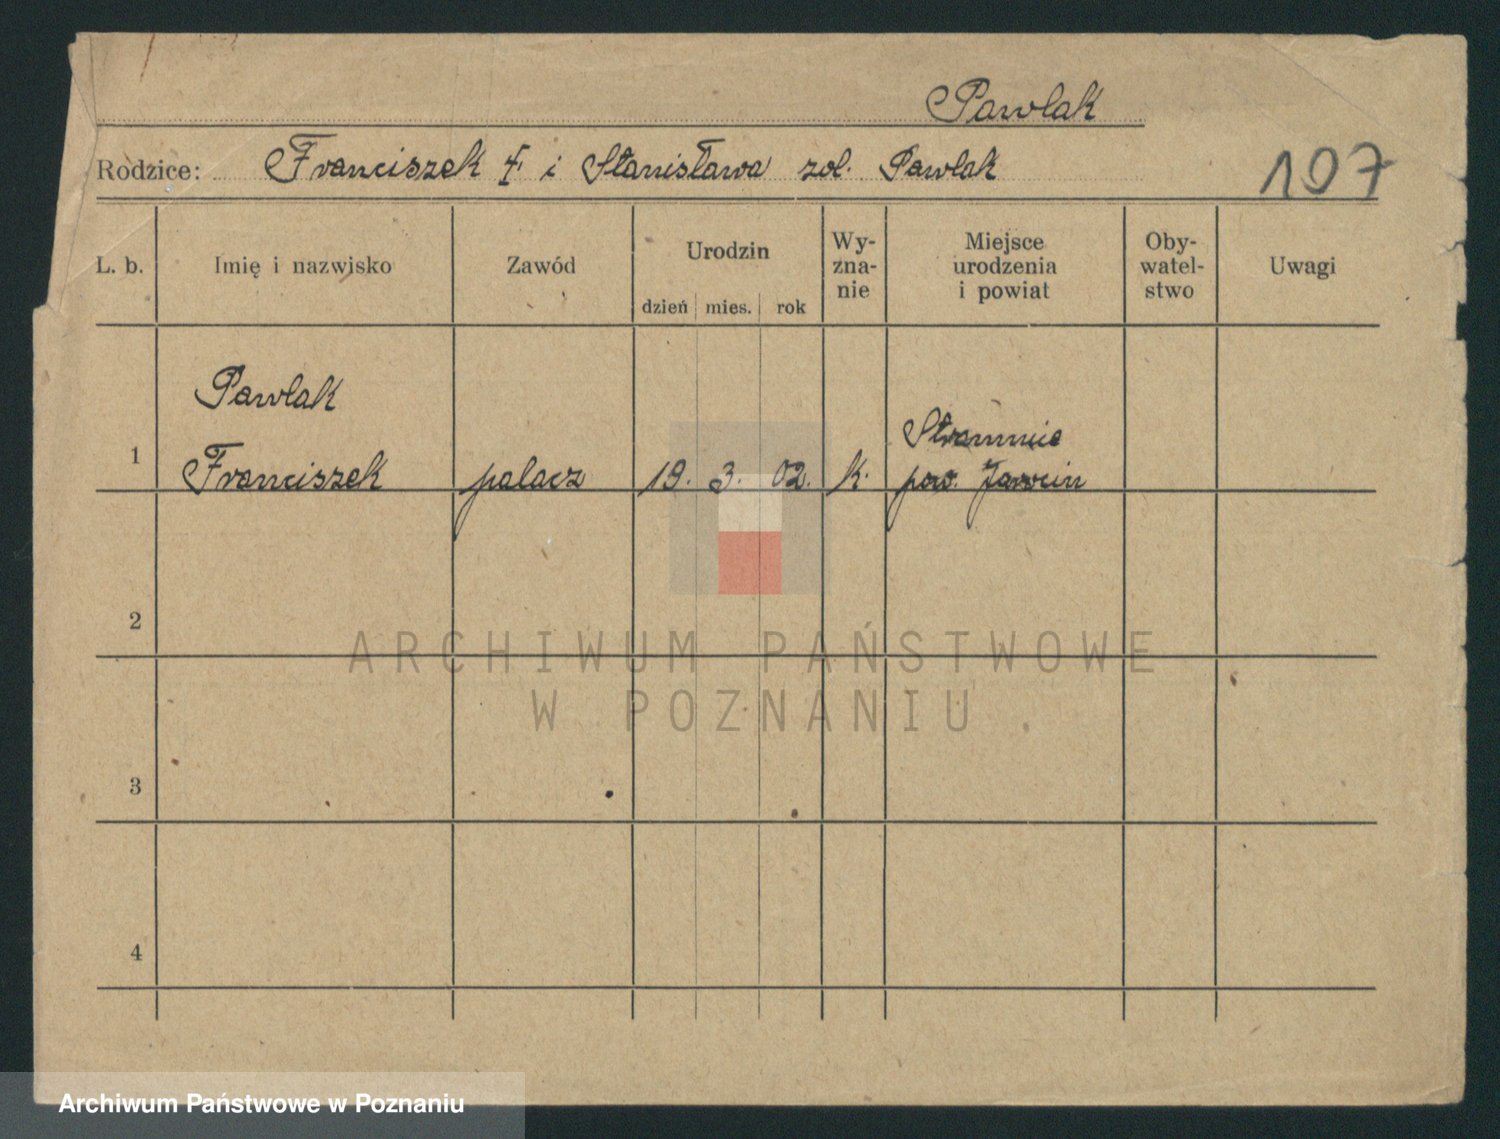 Pawlak
Rodzice: Franciszek † i Stanisława zol. Pawlak
197
L. b. Imię i nazwisko Zawód Urodzin dzień mies. rok Wy-zna-nie Miejsce urodzenia i powiat Oby-watel-stwo Uwagi
Pawlak
1 Franciszek palacz 19. 3. 02. k. pow. Jarocin
2
3
4
ARCHIWUM PAŃSTWOWE
W POZNANIU .
Archiwum Państwowe w Poznaniu